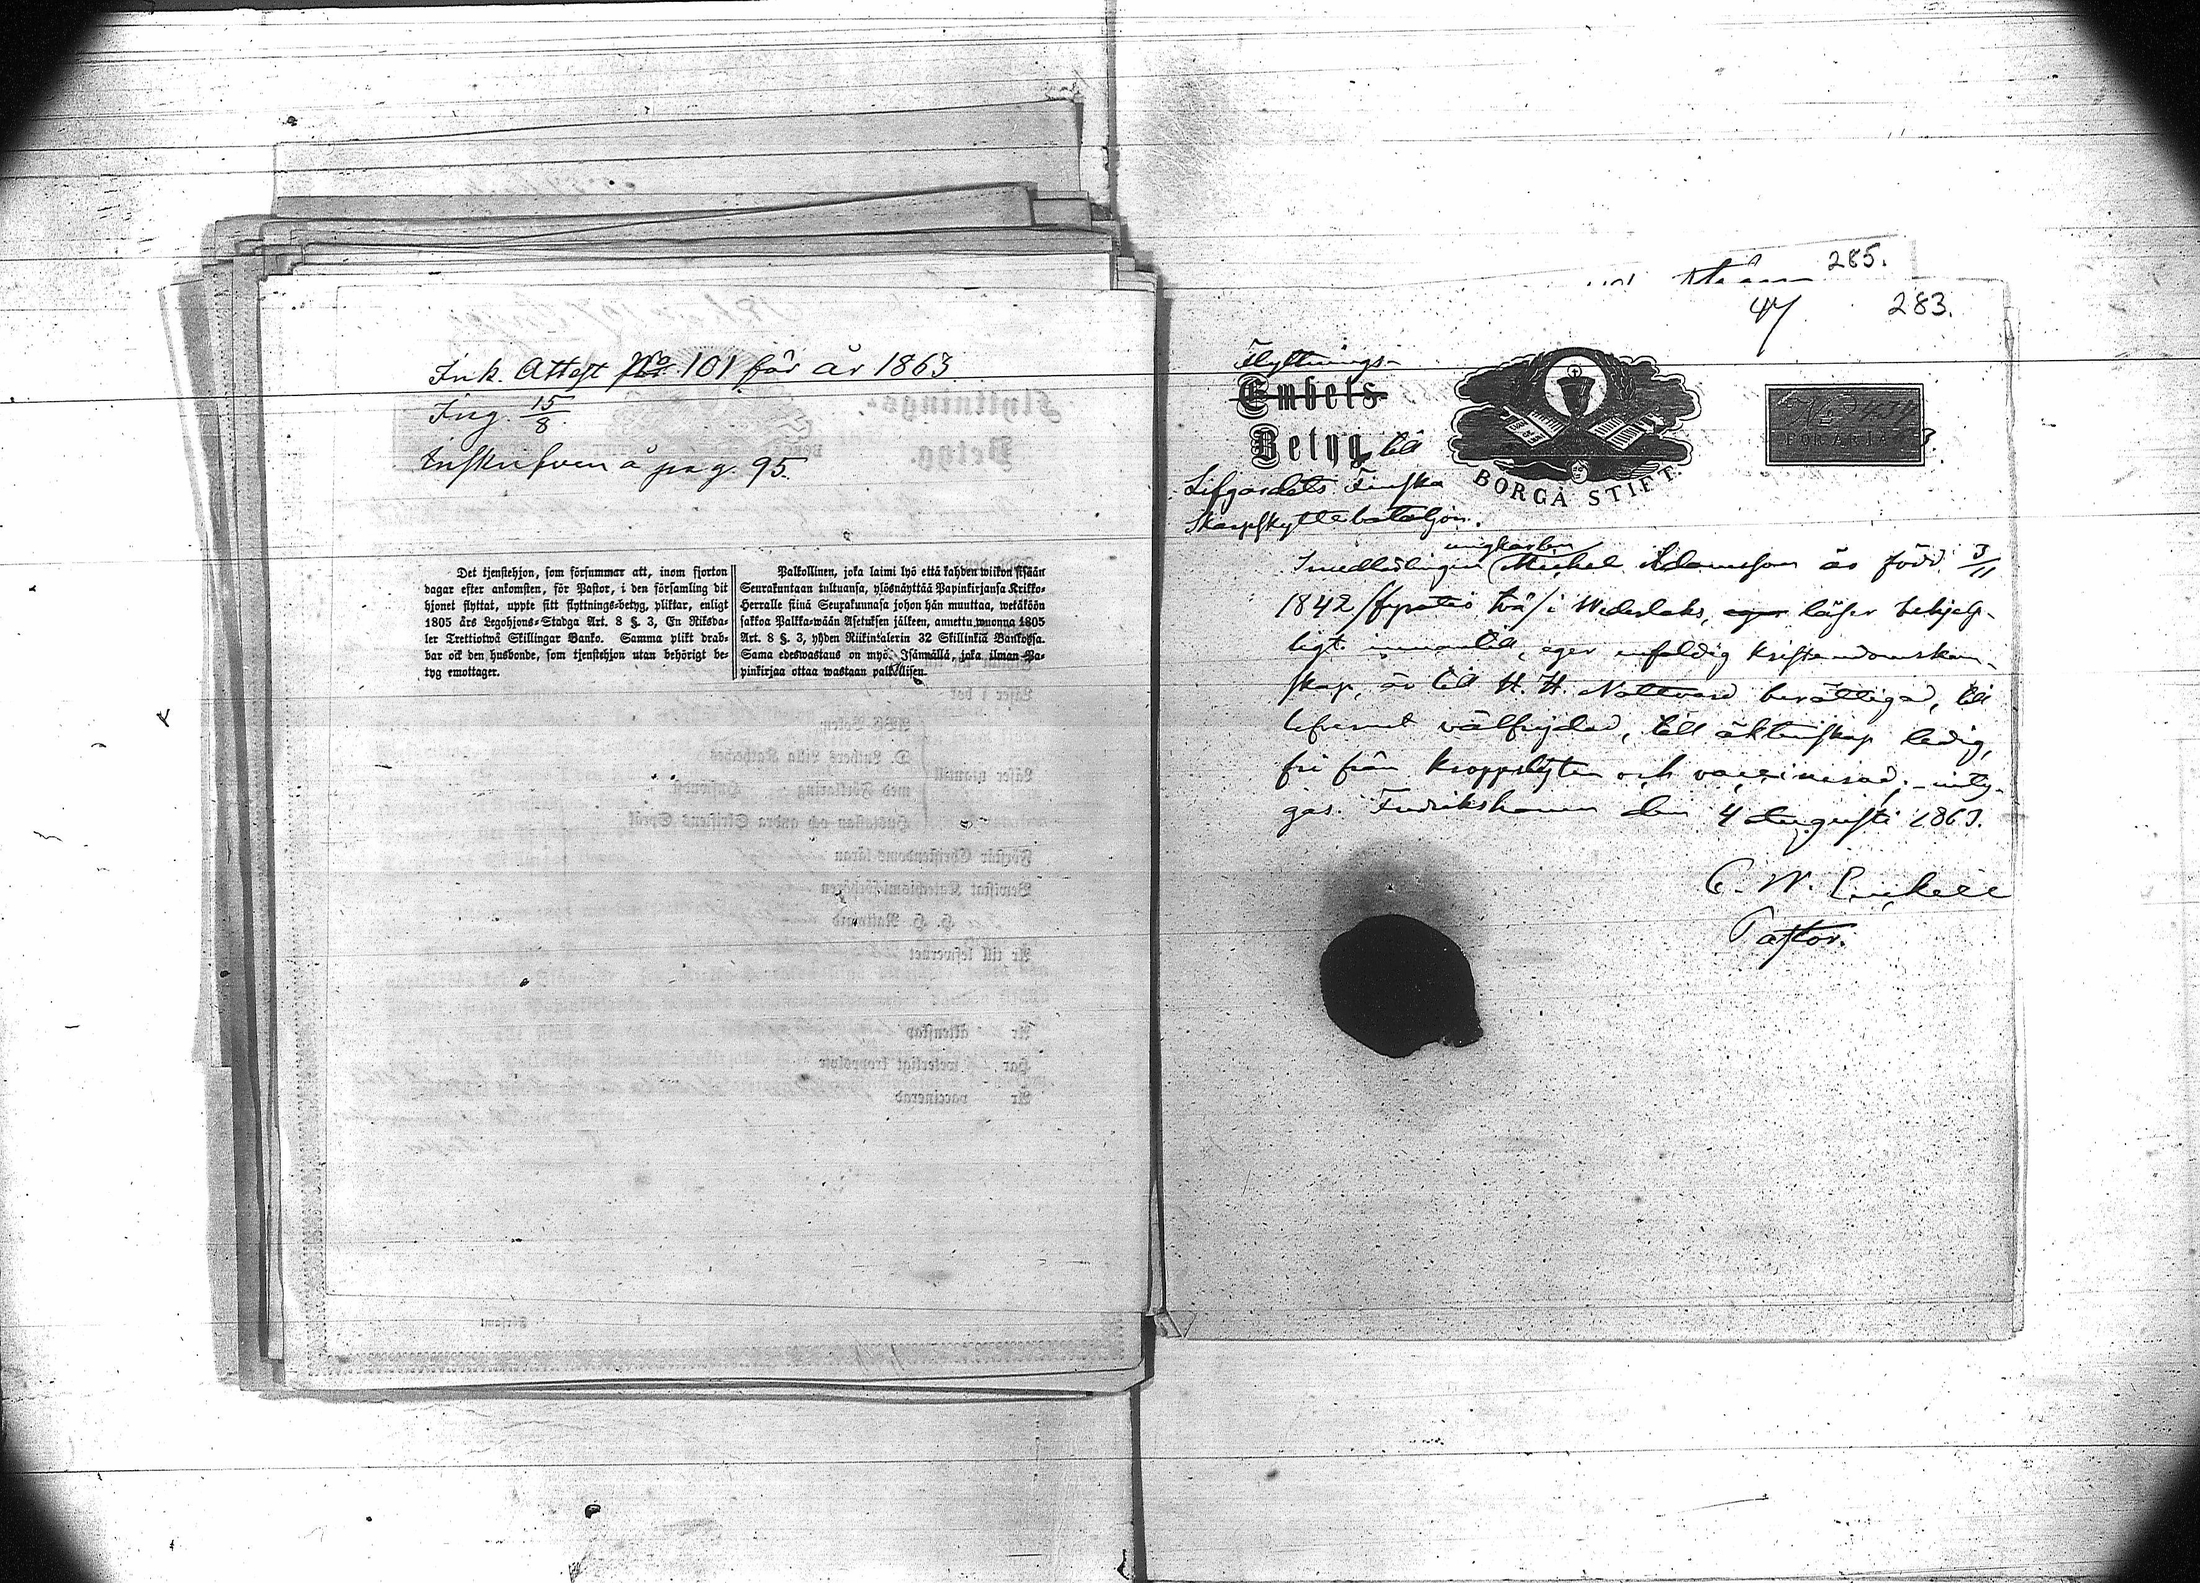 Ink. Attest No 101 för år 1863
Ing. 15/8.
Inskrifven å pag. 95.
Det tjenstehjon, som försummar att, inom fjorton
dagar efter ankomsten, för Pastor, i den församling dit
hjonet flyttat, uppte sitt flyttnings-betyg, pliktar, enligt
1805 års Legohjons-Stadga Art. 8 §. 3, En Riksda-
ler Trettiotwå Skillingar Banko. Samma plikt drab-
bar ock den husbonde, som tjenstehjon utan behörigt be-
tyg emottager.
Palkollinen, joka laimi lyö että kahden wiikon sisään
Seurakuntaan tultuansa, ylösnäyttää Papinkirjansa Krikko-
Herralle siinä Seurakunnasa johon hän muuttaa, wetäköön
sakkoa Palkka-wään Asetuksen jälkeen, annettu wuonna 1805
Art. 8 §. 3, yhden Riikintalerin 32 Skillinkiä Bankosa.
Sama edeswastaus on myö. Isännällä, joka ilman Pa-
pinkirjaa ottaa wastaan palkollisen.
285.
47 283.
Flyttnings-
Embets-
Betyg till
BORGÅ STIFT
Lifgardets Finska
Skarpskyttebataljon.
ungkarlen
Michel Adamsson är född 3/11
1842 /fyratio två/ i Wederlaks, läser behjelp-
ligt innantill, eger enfaldig kristendomskun-
skap, är till H. H. Nattvard berättigad, till
lefvernet välfrejdad, till äktenskap ledig,
fri från kroppslyten och vaccinerad; - inty-
gas. Fredrikshamn den 4 Augusti 1863.
C. W.
Pastor.